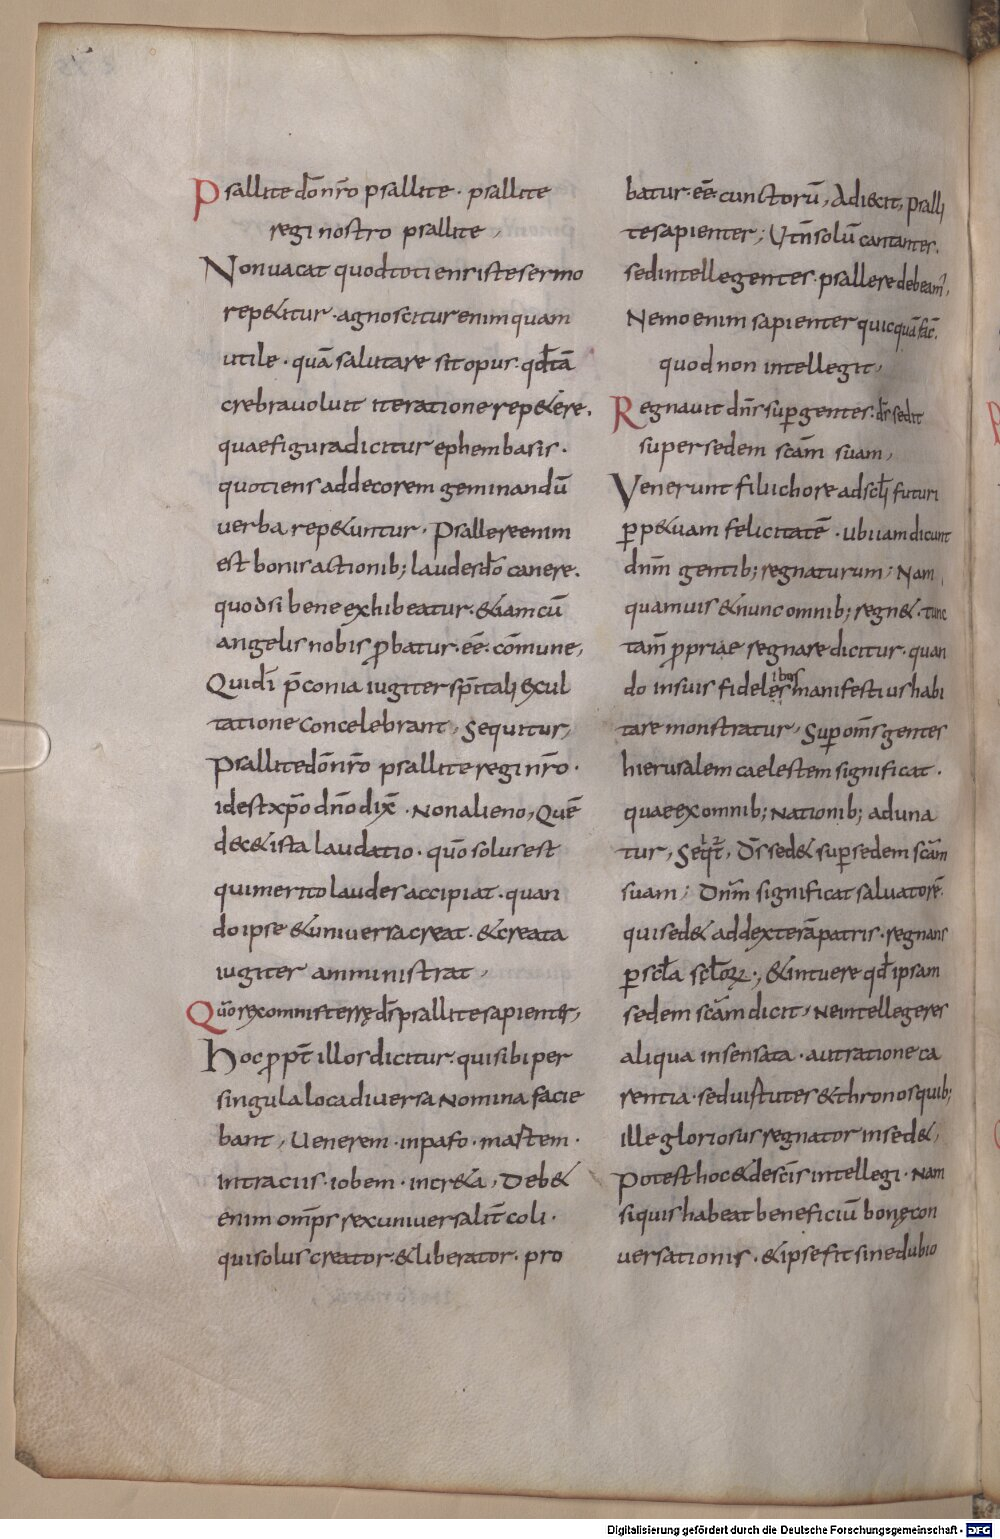 Psallite dō nr̄o psallite · psallite
regi nostro psallite ,
Non uacat quod totiens iste sermo
rep&itur · agnoscitur enim quam
utile · quā salutare sit opus · qđ tā
crebra uoluit iteratione rep&ere .
quae figura dicitur ephembasis ·
quotiens ad decorem geminandū
uerba rep&untur · Psallere enim
est bonis actionib; laudes dō canere .
quod si bene exhibeatur · &iam cū
angelis nobis ꝓbatur · eē · cōmune ,
Qui dī p̄conia iugiter sp̄itali excul
tatione concelebrant , Sequitur ,
Psallite dō nr̄o psallite regi nr̄o ·
id est xp̄o dn̄o dix̄ · Non alieno , Quē
dec& ista laudatio · quō solus est
qui merito laudes accipiat · quan
do ipse & uniuersa creat · & creata
iugiter amministrat ,
Qūo rex omnis terrę dī psallite sapienter ,
Hoc ꝓpt̄ illos dicitur · qui sibi per
singula loca diuersa Nomina facie
bant , Uenerem · in pafo · mastem ·
in traciis · iobem · in cr&a , Deb&
enim om̄ps rex uniuersalit̄ coli ·
qui solus creator · & liberator · pro
batur · eē cunctorū , Adiecit , psalli
te sapienter ; Ut n̄ solū cantantes .
sed intellegentes · psallere debeam' ,
Nemo enim sapienter quicquā fac̄ .
quod non intellegit ,
Regnauit dn̄s suꝑ gentes · d̄s sedit
super sedem sc̄am suam ,
Venerunt filii chore ad sc̄lī futuri
ꝑp&uam felicitatē · ubi iam dicunt
dn̄m gentib; regnaturum ; Nam
quamuis & nunc omnib; regn& · tunc
tam̄ ꝓpriae regnare dicitur · quan
do in suis fideles ibus manifestius habi
tare monstratur , Suꝑ om̄s gentes
hierusalem caelestem significat ·
quae ex omnib; Nationib; aduna
tur , Seqt̄ , Ds̄ sed& suꝑ sedem sc̄am
suam ; Dn̄m significat saluatorē
qui sed& ad dexterā patris · regnans
ꝑ scl̄a scl̄oꝝ · , & intuere qđ ipsam
sedem sc̄am dicit , Ne intellegeres
aliqua insensata · aut ratione ca
rentia · sed uistutes & thronos quib;
ille gloriosus regnator insed& ,
Potest hoc & de sc̄is intellegi · Nam
si quis habeat beneficiū bonę con
uersationis · & ipse fit sine dubio
Digitalisierung gefördert durch die Deutsche Forschungsgemeinschaft - DFG